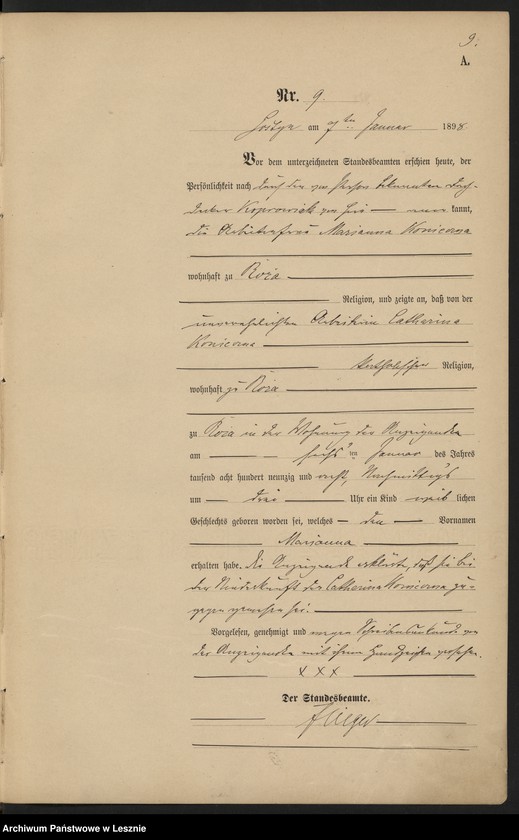 9.
A.
Nr. 9.
am 7ten Januar 1898
Vor dem unterzeichneten Standesbeamten erschien heute, der
Persönlichkeit nach durch den von Person bekannten
Koprowiak von hier kannt,
die Arbeiterfrau Marianna Konieczna
wohnhaft zu Roża
Religion, und zeigte an, daß von der
unverehelichten Arbeiterin Catharina
Konieczna
katholischer Religion,
wohnhaft zu Roża
zu Roża in der Wohnung der Anzeigende
am sechsten Januar des Jahres
tausend acht hundert neunzig und acht, Nachmittags
um drei Uhr ein Kind weiblichen
Geschlechts geboren worden sei, welches den Vornamen
Marianna
erhalten habe. Die Anzeigende erklärte, daß sie bei
der Niederkunft der Catharina Konieczna zu-
gegen gewesen sei.
Vorgelesen, genehmigt und wegen Schreibensunkunde von
der Anzeigenden mit ihrem Handzeichen versehen.
XXX
Der Standesbeamte.
Archiwum Państwowe w Lesznie